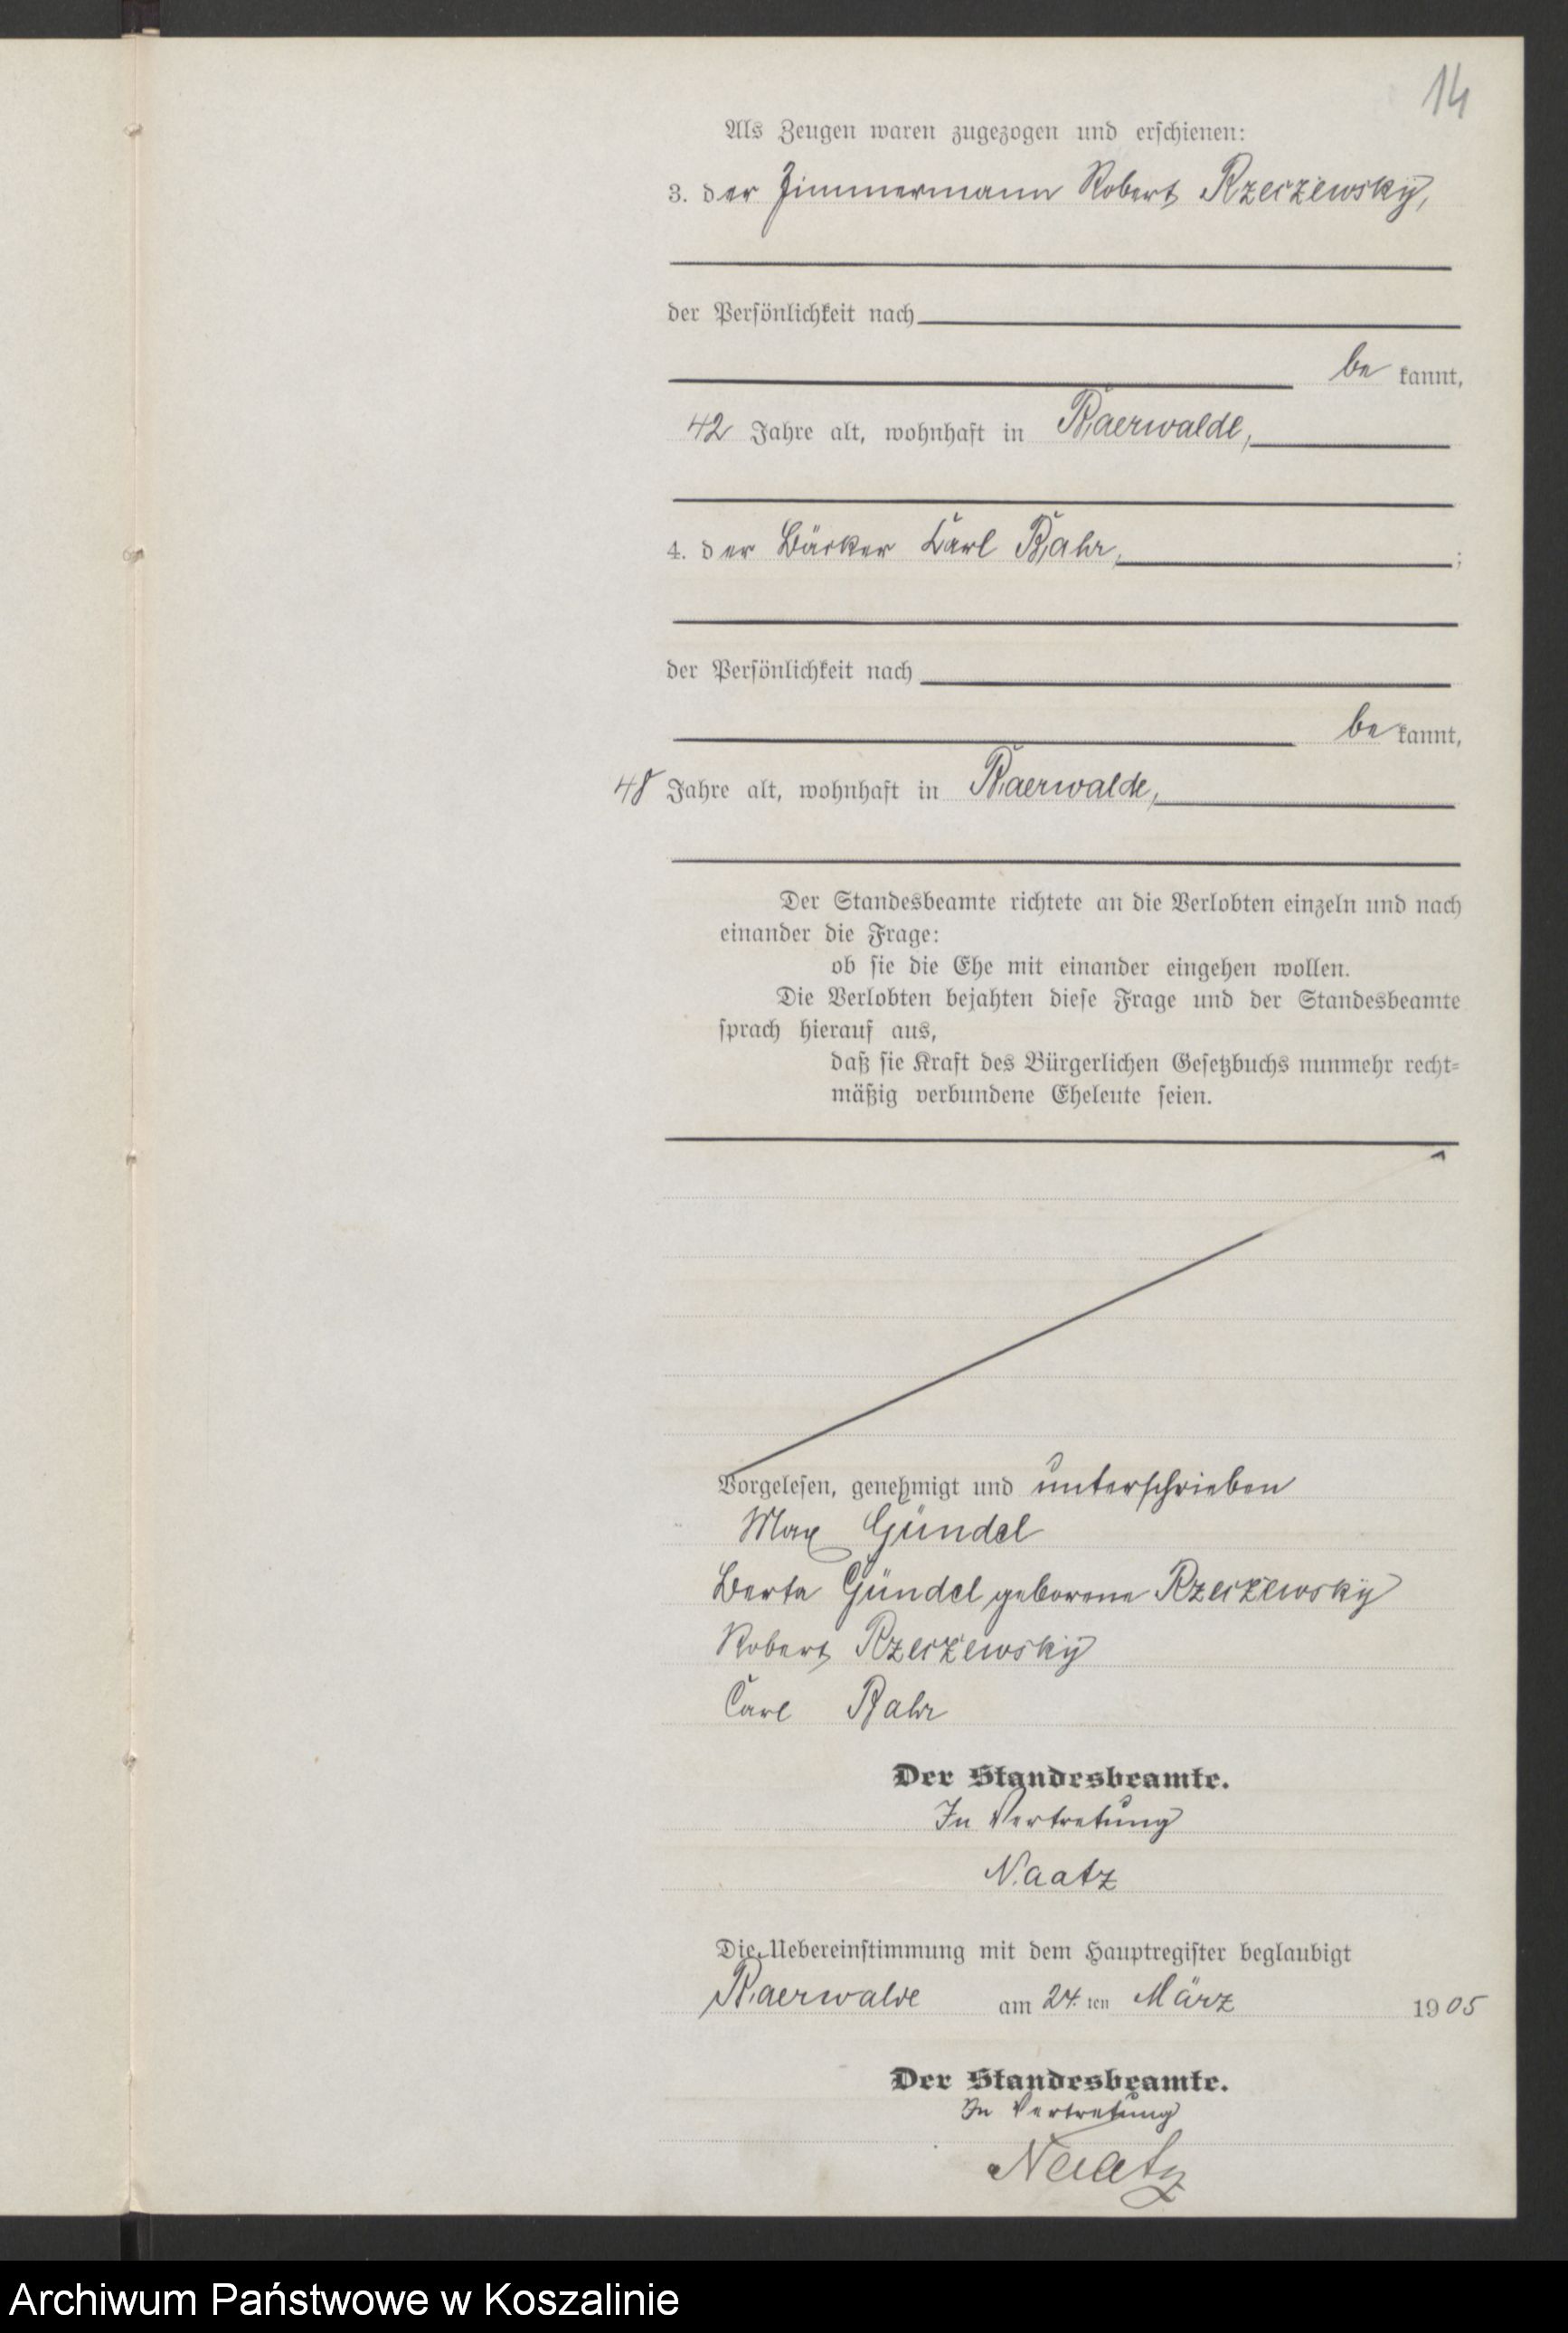 14
Als Zeugen waren zugezogen und erschienen:
3. der Zimmermann Robert Rzeszewsky,
der Persönlichkeit nach
be kannt,
42 Jahre alt, wohnhaft in Baerwalde,
4. der Bäcker Carl Bahr, ;
der Persönlichkeit nach
be kannt,
48 Jahre alt, wohnhaft in Baerwalde,
Der Standesbeamte richtete an die Verlobten einzeln und nach
einander die Frage:
ob sie die Ehe mit einander eingehen wollen.
Die Verlobten bejahten diese Frage und der Standesbeamte
sprach hierauf aus,
daß sie Kraft des Bürgerlichen Gesetzbuchs nunmehr recht-
mäßig verbundene Eheleute seien.
Vorgelesen, genehmigt und unterschrieben
Max Gündel
Berta Gündel geborene Rzeszewsky
Robert Rzeszewsky
Carl Bahr
Der Standesbeamte.
In Vertretung
Naatz
Die Uebereinstimmung mit dem Hauptregister beglaubigt
Baerwalde am 24. ten März 1905
Der Standesbeamte.
In Vertretung
Naatz
Archiwum Państwowe w Koszalinie